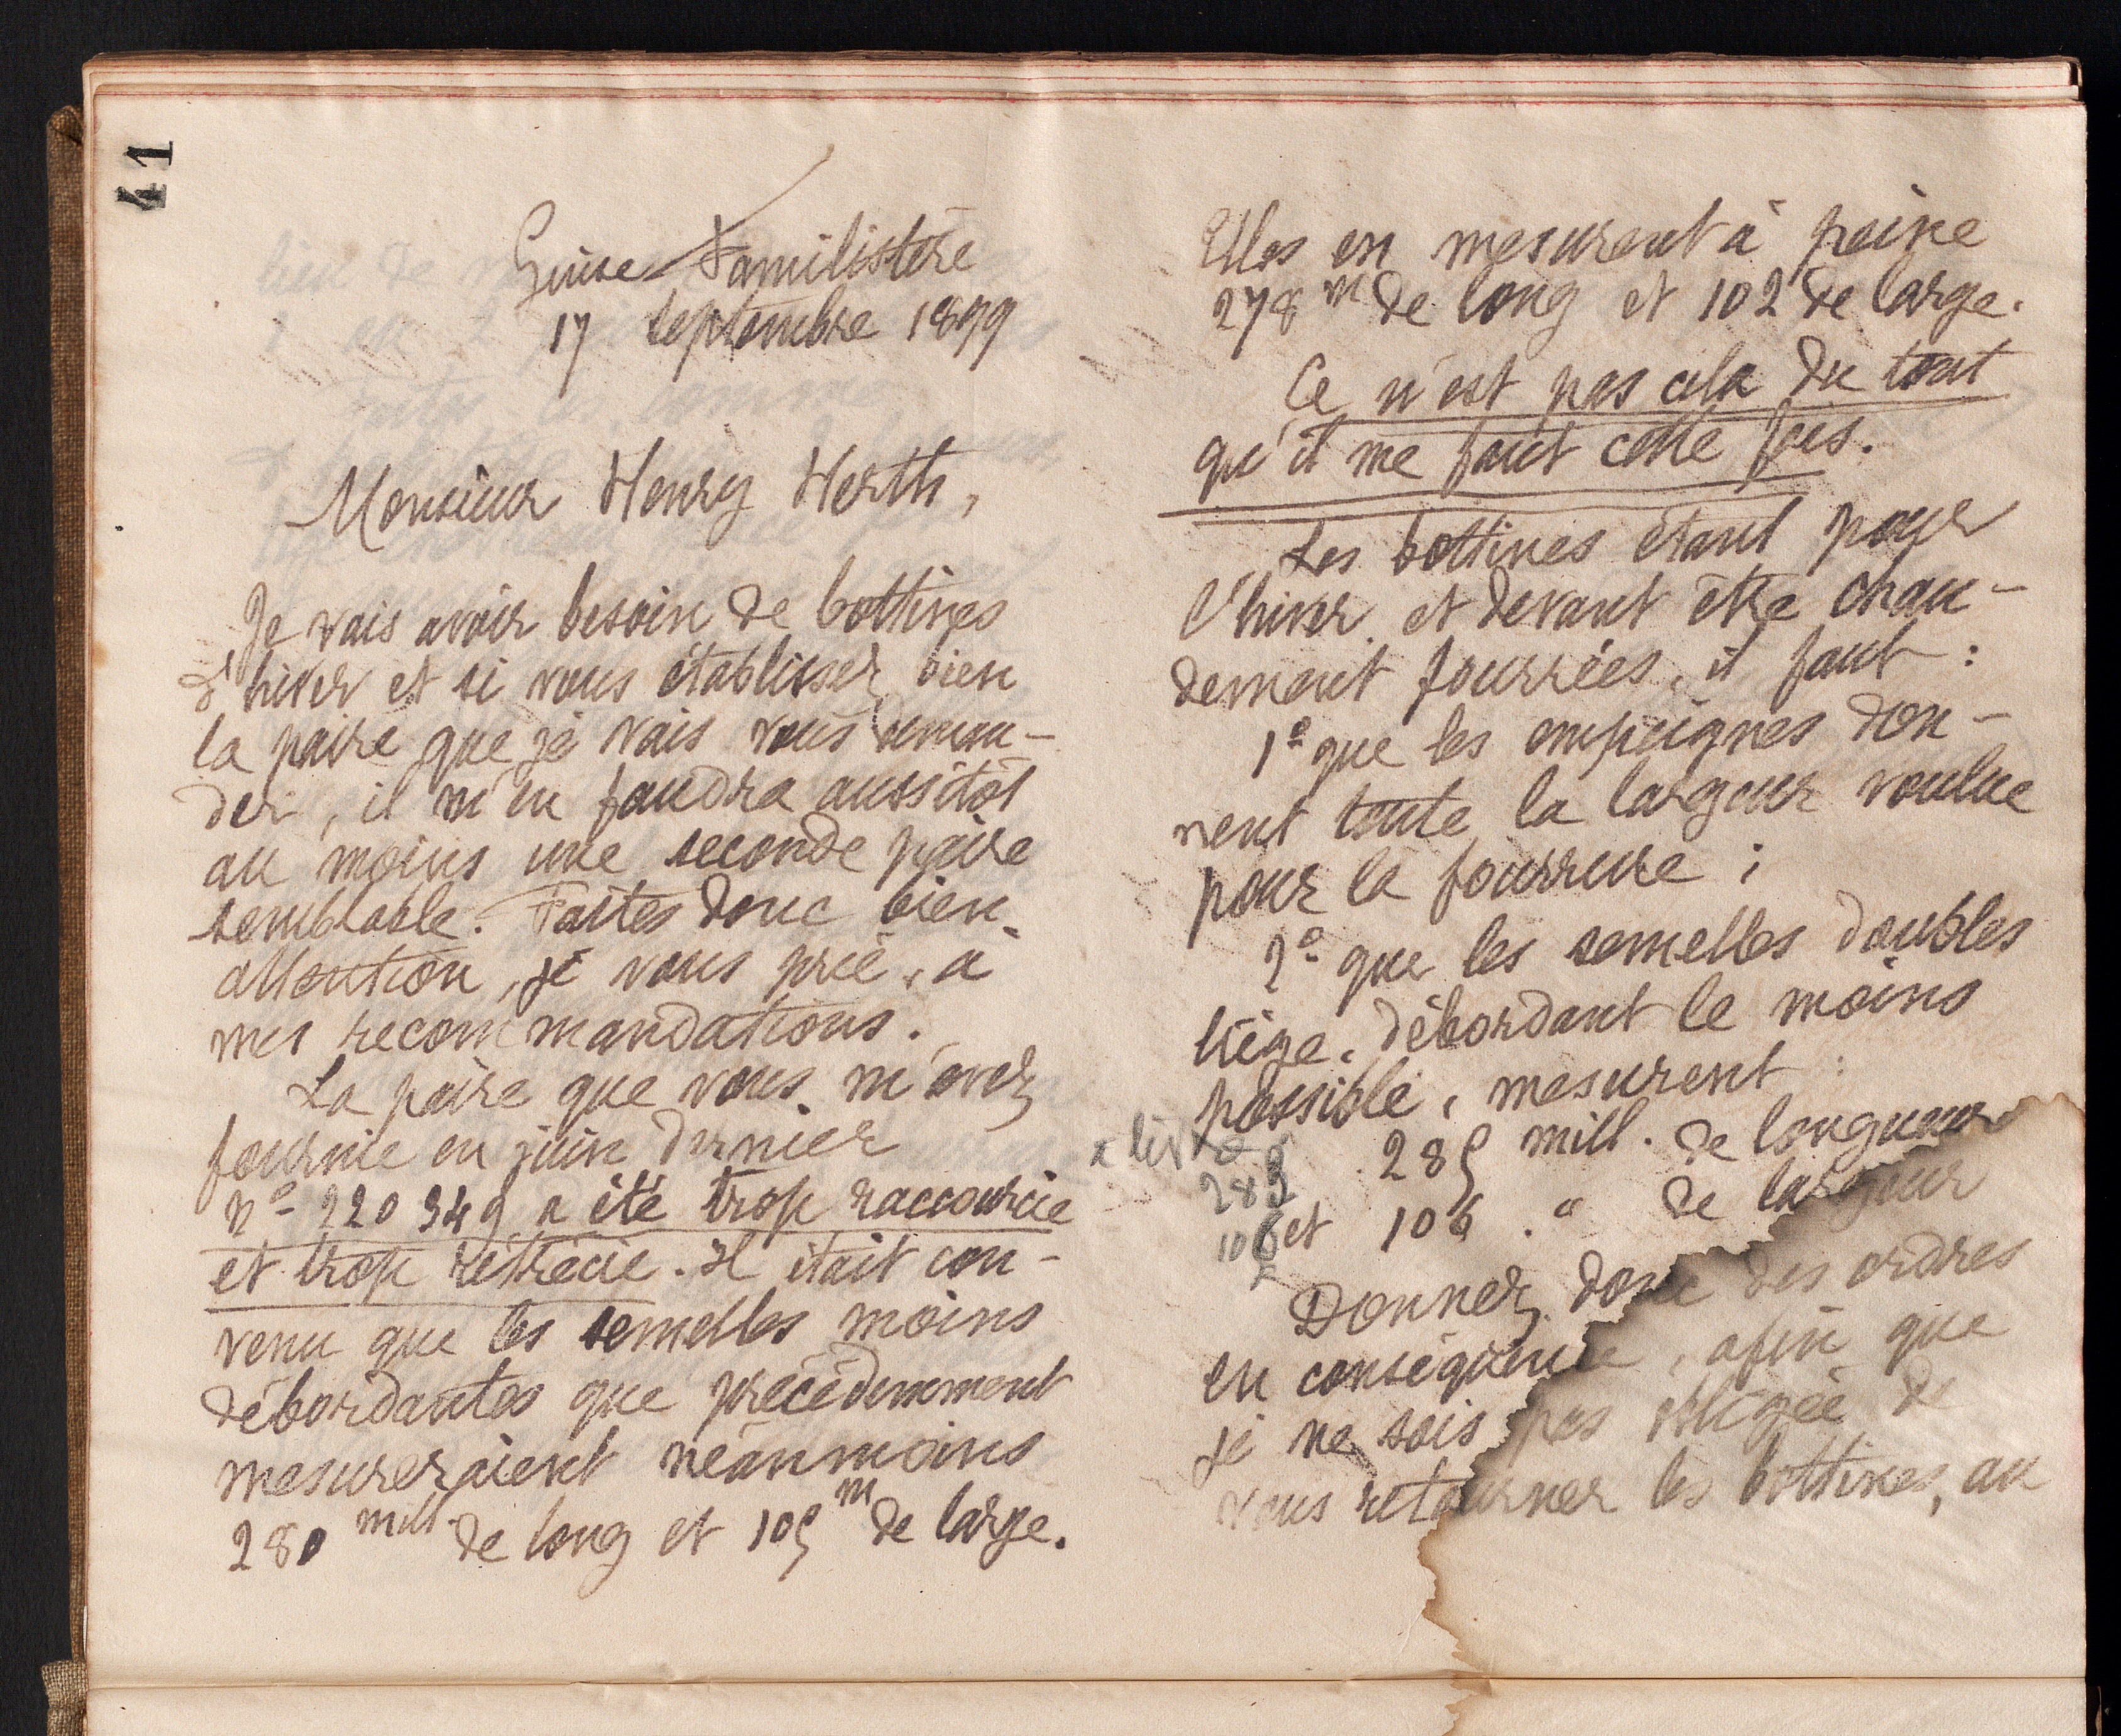 41
Guise Familistère
17 septembre 1899
Monsieur Henry Herth,
Je vais avoir besoin de bottines
d'hiver et si vous établissez bien
la paire que je vais vous deman-
der, il m'en faudra aussitôt
au moins une seconde paire
semblable. Faites donc bien
attention, je vous prie, à
mes recommandations.
La paire que vous m'avez
fournie en juin dernier
n° 220 349 a été trop raccourcie
et trop rétrécie. Il était con-
venu que les semelles moins
débordantes que précédemment
mesureraient néanmoins
280 mill. de long et 105 m de large.
Elles en mesurent à peine
278 m de long et 102 de large.
Ce n'est pas cela du tout
qu'il me faut cette fois.
Les bottines étant pour
l'hiver et devant être chau-
dement fourrées, il faut :
1° que les empeignes don-
nent toute la largeur voulue
pour la fourrure ;
2° que les semelles doubles
liège, débordant le moins
possible, mesurent :
285 mill. de longueur
285
et 106 . " de largeur
106
Donnez donc des ordres
en conséquence, afin que
je ne sois pas obligée de
vous retourner les bottines, au